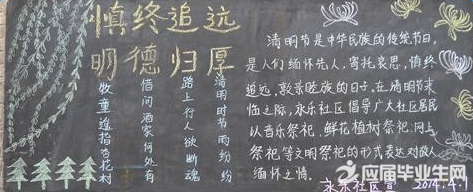 慎终追远
明德归厚
清明时节雨纷纷
路上行人欲断魂
借问酒家何处有
牧童遥指杏花村
清明节是中华民族的传统节日,
是人们缅怀先人,寄托哀思,慎终
追远,敦亲睦族的日子,在清明节来
临之际,永乐社区倡导广大社区居民
以音乐祭祀、鲜花植树祭祀、网上
祭祀等文明祭祀的形式表达对故人
缅怀之情。
永乐社区宣 2014.4.1
应届毕业生网